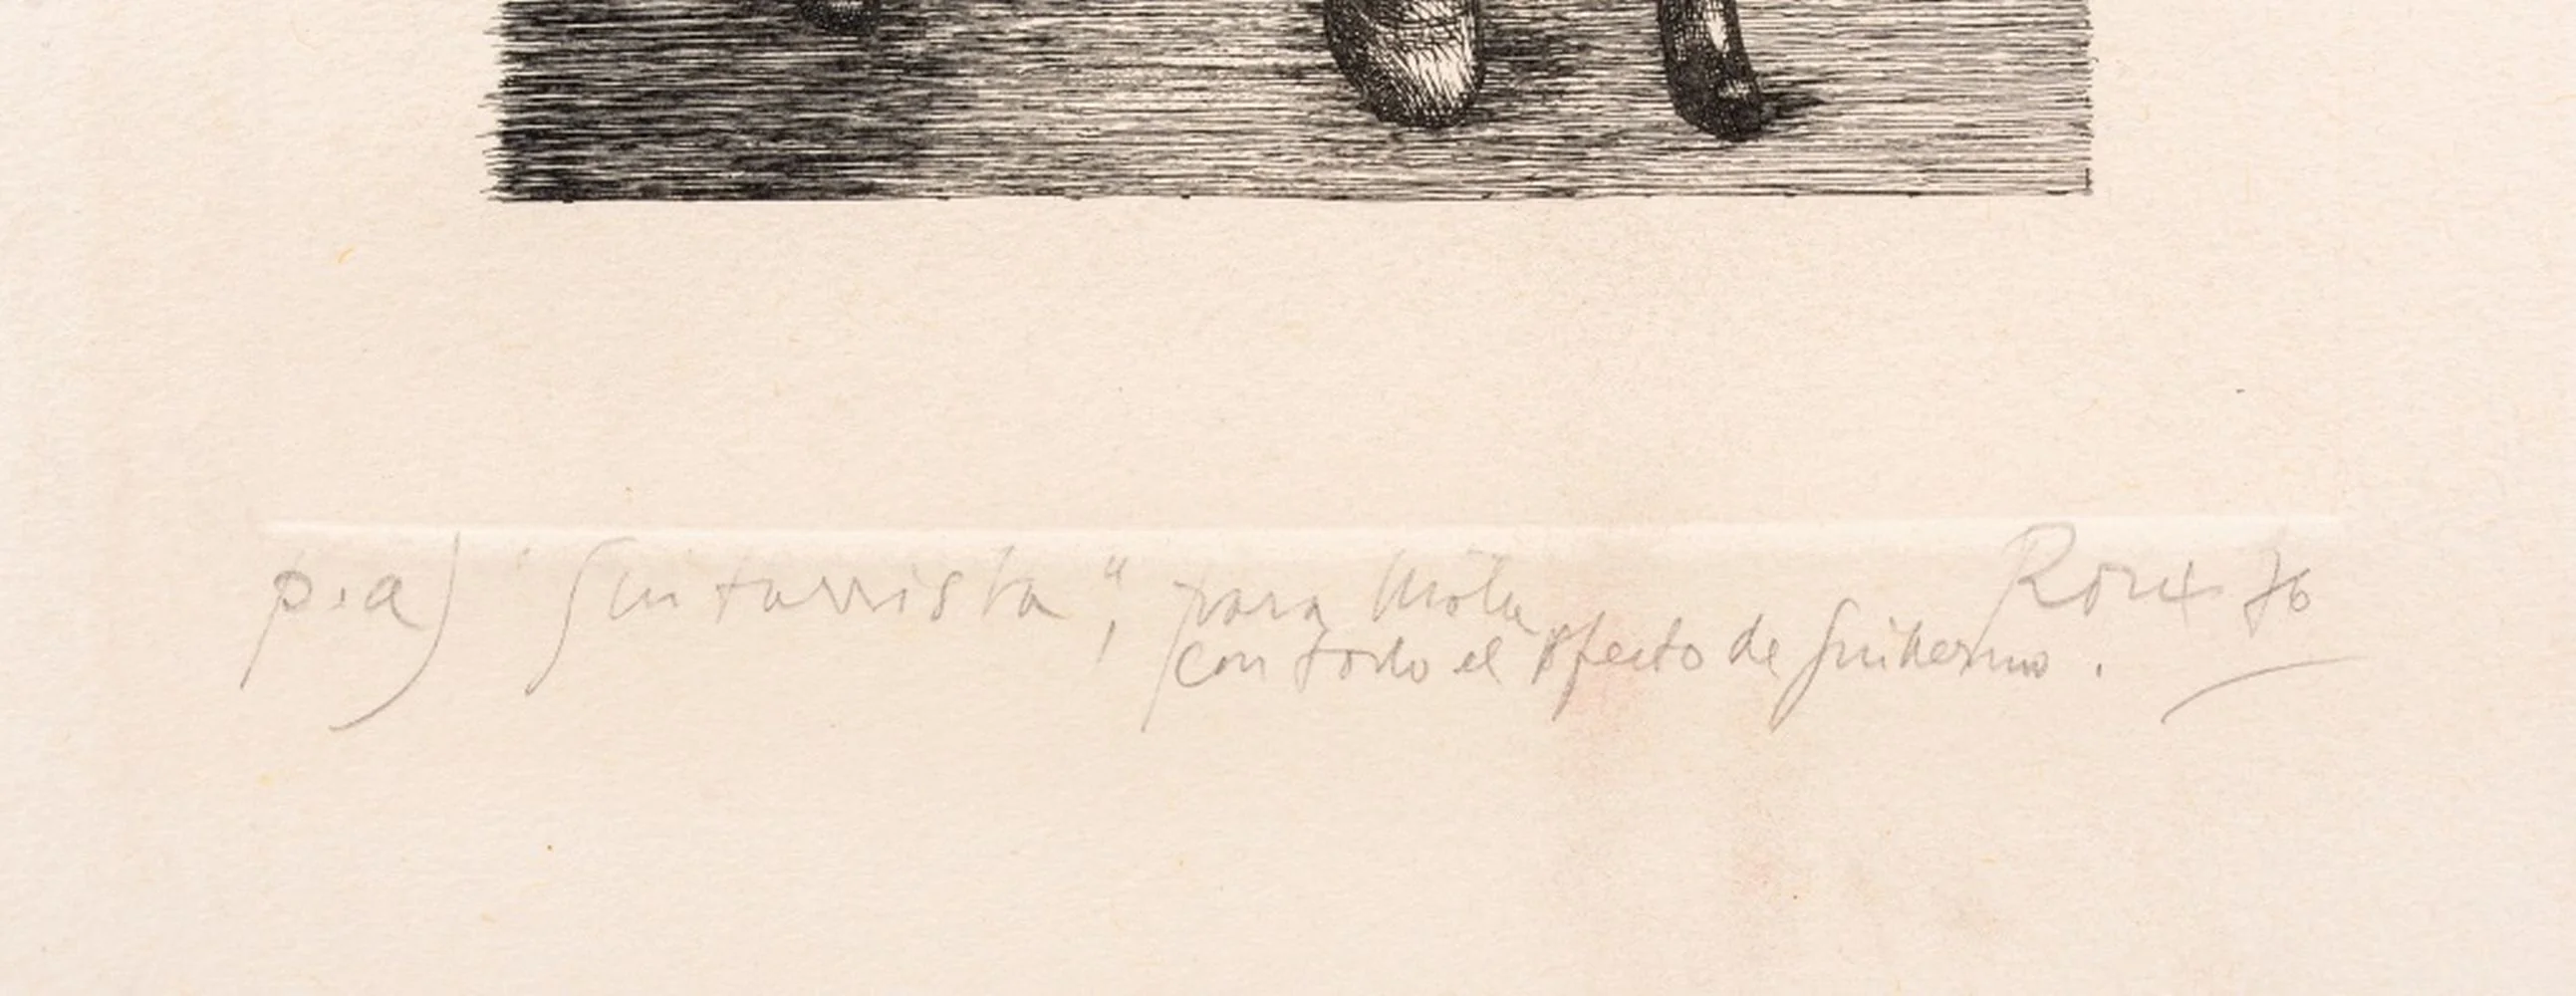 p.a) "Guitarrista", para Roux 76
con todo el afecto de Guillermo.